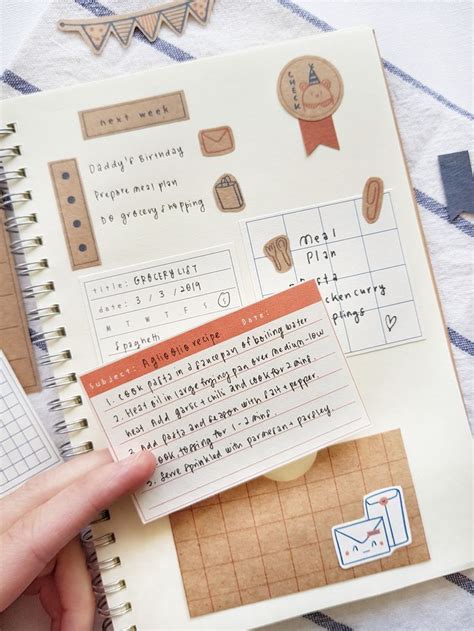 next week
CHECK
Daddy's Birthday
Prepare meal plan
Do grocery shopping
title: GROCERY LIST
date: 3 / 3 / 2019
M T W T F S S
Spaghetti
Meal
Plan
Pasta
chicken curry
Subject: Aglio olio recipe Date:
1. Cook pasta in a saucepan of boiling water
2. Heat oil in large frying pan over medium-low
heat. Add garlic + chili and cook for 2 mins.
3. Add pasta and season with salt + pepper.
Cook, tossing for 1-2 mins.
5. Serve sprinkled with parmesan + parsley.